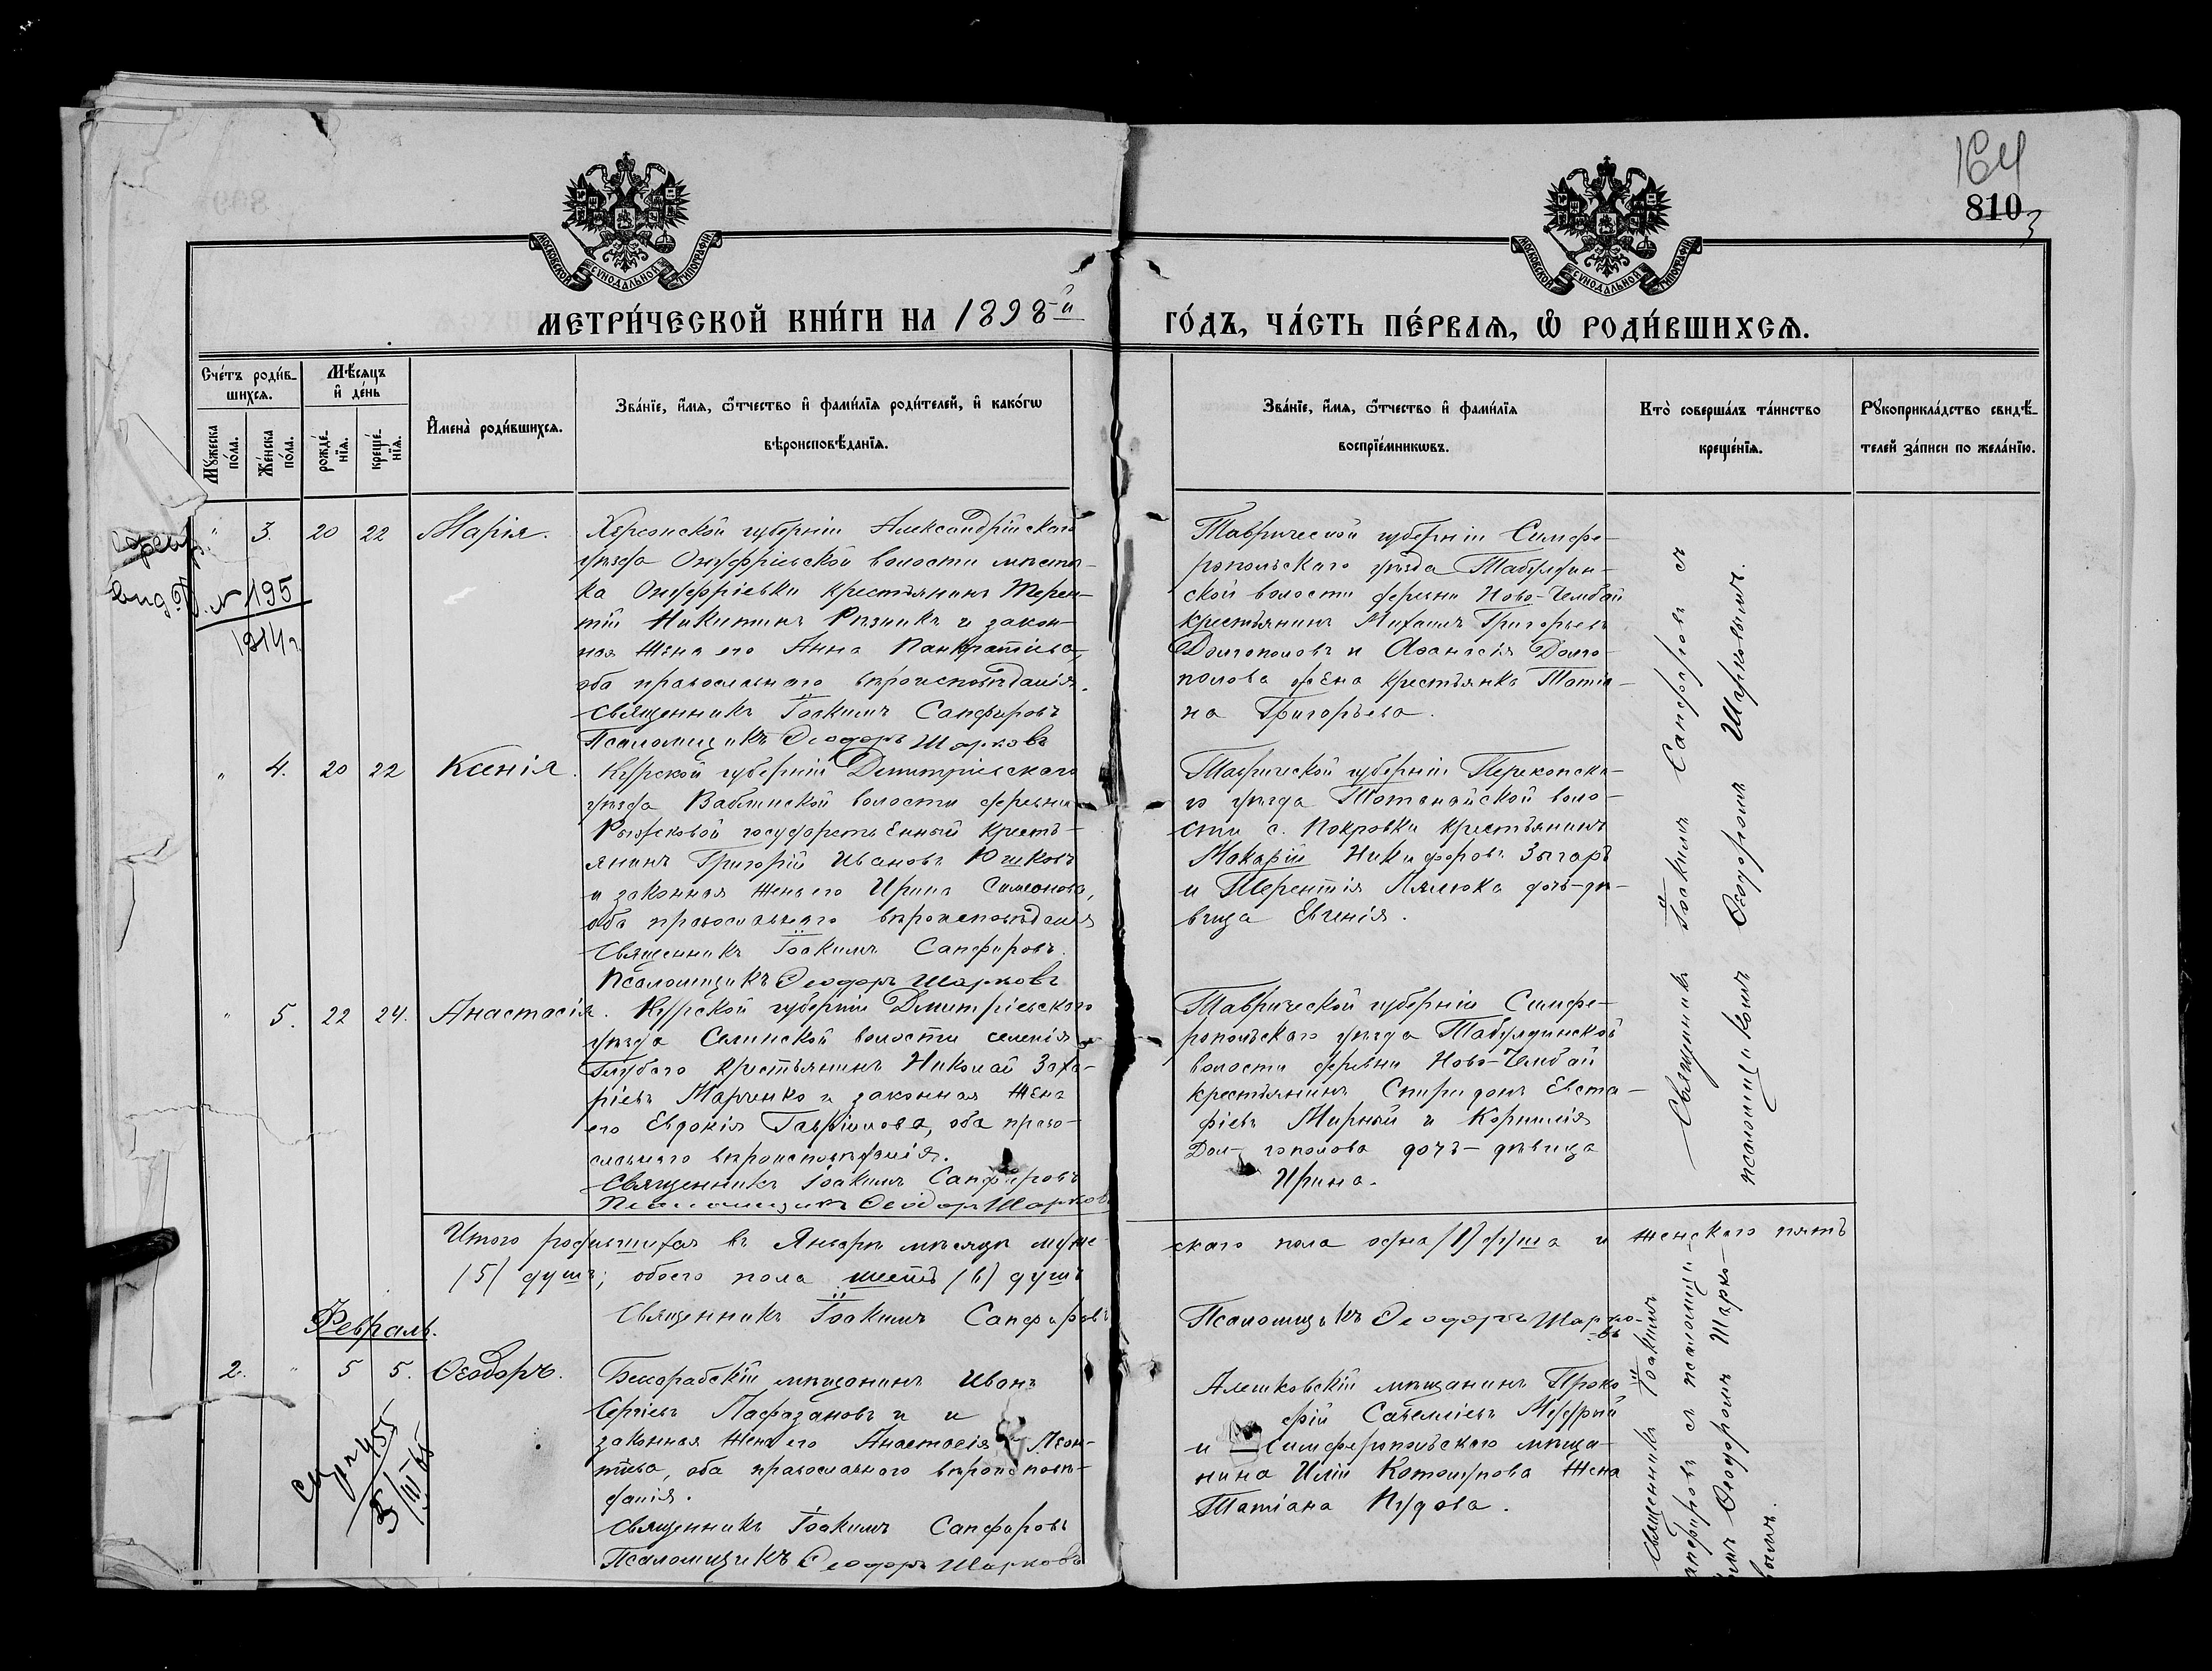 164
810
3
МОСКОВСКОЙ СѴНОДАЛЬНОЙ ТИПОГРАФІИ
МОСКОВСКОЙ СѴНОДАЛЬНОЙ ТИПОГРАФІИ
МЕТРИ́ЧЕСКОЙ КНИ́ГИ НА 1898-й
ГО́ДЪ, ЧА́СТЬ ПЕ́РВАѦ, Ѡ РОДИ́ВШИХСѦ.
Сче́тъ роди́в-
шихсѧ.
Мꙋ́жеска по́ла.
Же́нска по́ла.
Мѣ́сѧцъ и҆ де́нь
рожде́-нїѧ.
креще́-нїѧ.
И҆мена̀ роди́вшихсѧ.
Зва́нїе, и҆́мѧ, ѻ҆́тчество и҆ фами́лїѧ роди́телей, и҆ како́гѡ
вѣроисповѣ́данїѧ.
Зва́нїе, и҆́мѧ, ѻ҆́тчество и҆ фами́лїѧ
воспрїе́мникѡвъ.
Кто̀ соверша́лъ та́инство
креще́нїѧ.
Рꙋкоприкла́дство свидѣ́-
телей за́писи по жела́нїю.
вид. № 195
1914 г.
" 3. 20 22 Марія.
Херсонской губерніи Александрійскаго
уѣзда Онуфріевской волости мѣстеч-
ка Онуфріевки крестьянинъ Терен-
тій Никитинъ Рѣзникъ и закон-
ная жена его Анна Панкратіева,
оба православнаго вѣроисповѣданія.
Священникъ Іоакимъ Сапфировъ
Псаломщикъ Ѳеодоръ Шарковъ
Таврической губерніи Симфе-
ропольскаго уѣзда Табулдин-
ской волости деревни Ново-Чембай
крестьянинъ Михаилъ Григорьевъ
Долгополовъ и Аѳанасія Долго-
полова жена крестьянка Татіа-
на Григорьева.
" 4. 20 22 Ксенія.
Курской губерніи Димитріевскаго
уѣзда Ваблинской волости деревни
Рыжковой государственный кресть-
янинъ Григорій Ивановъ Юшковъ
и законная жена его Ирина Симеонова,
оба православнаго вѣроисповѣданія
Священникъ Іоакимъ Сапфировъ.
Псаломщикъ Ѳеодоръ Шарковъ
Таврической губерніи Перекопска-
го уѣзда Тотанайской воло-
сти с. Покровки крестьянинъ
Макарій Никифоровъ Зыгарь
и Терентія дочь-дѣ-
вица Евгенія.
" 5. 22 24. Анастасія.
Курской губерніи Дмитріевскаго
уѣзда Селинской волости селенія
Глубаго крестьянинъ Николай Заха-
ріевъ Марченко и законная жена
его Евдокія Гавріилова, оба право-
славнаго вѣроисповѣданія.
Священникъ Іоакимъ Сапфировъ
Псаломщикъ Ѳеодоръ Шарковъ
Таврической губерніи Симфе-
ропольскаго уѣзда Табулдинской
волости деревни Ново-Чембай
крестьянинъ Спиридонъ Евста-
фіевъ Мирный и Корнилія
Дол- гополова дочь-дѣвица
Ирина.
Священникъ Іоакимъ Сапфировъ съ
псаломщикомъ Ѳеодоромъ Шарковымъ.
Итого родившихся въ Январѣ мѣсяцѣ муже-
скаго пола одна /1/ душа и женскаго пять
/5/ душъ; обоего пола шесть /6/ душъ
Священникъ Іоакимъ Сапфировъ
Псаломщикъ Ѳеодоръ Шарко-
въ
Февраль.
2. " 5 5. Ѳеодоръ.
Бессарабскій мѣщанинъ Иванъ
Сергіевъ Пафазановъ и и
законная жена его Анастасія Леон-
тіева, оба православнаго вѣроисповѣ-
данія.
Священникъ Іоакимъ Сапфировъ
Псаломщикъ Ѳеодоръ Шарковъ
Алешковскій мѣщанинъ Проко-
фій Савелліевъ
и Симферопольскаго мѣща-
нина Иліи жена
Татіана
Священникъ Іоакимъ
Сапфировъ съ псаломщи-
комъ Ѳеодоромъ Шарко-
вымъ.